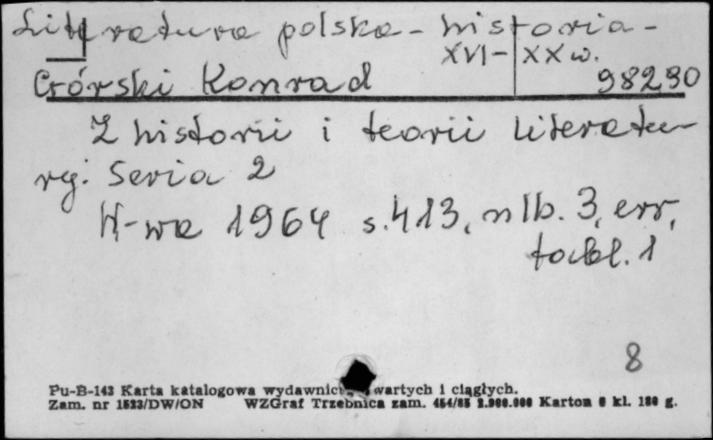 Literatura polska - historia -
XVI - XX w.
Górski Konrad 98290
Z historii i teorii literatu-
ry. Seria 2
W-wa 1964 s. 413, nlb. 3, err,
tabl. 1
8
Pu-B-143 Karta katalogowa wydawnict wartych i ciągłych.
Zam. nr 1523/DW/ON WZGraf Trzebnica zam. 454/85 2.900.000 Karton kl. 180 g.